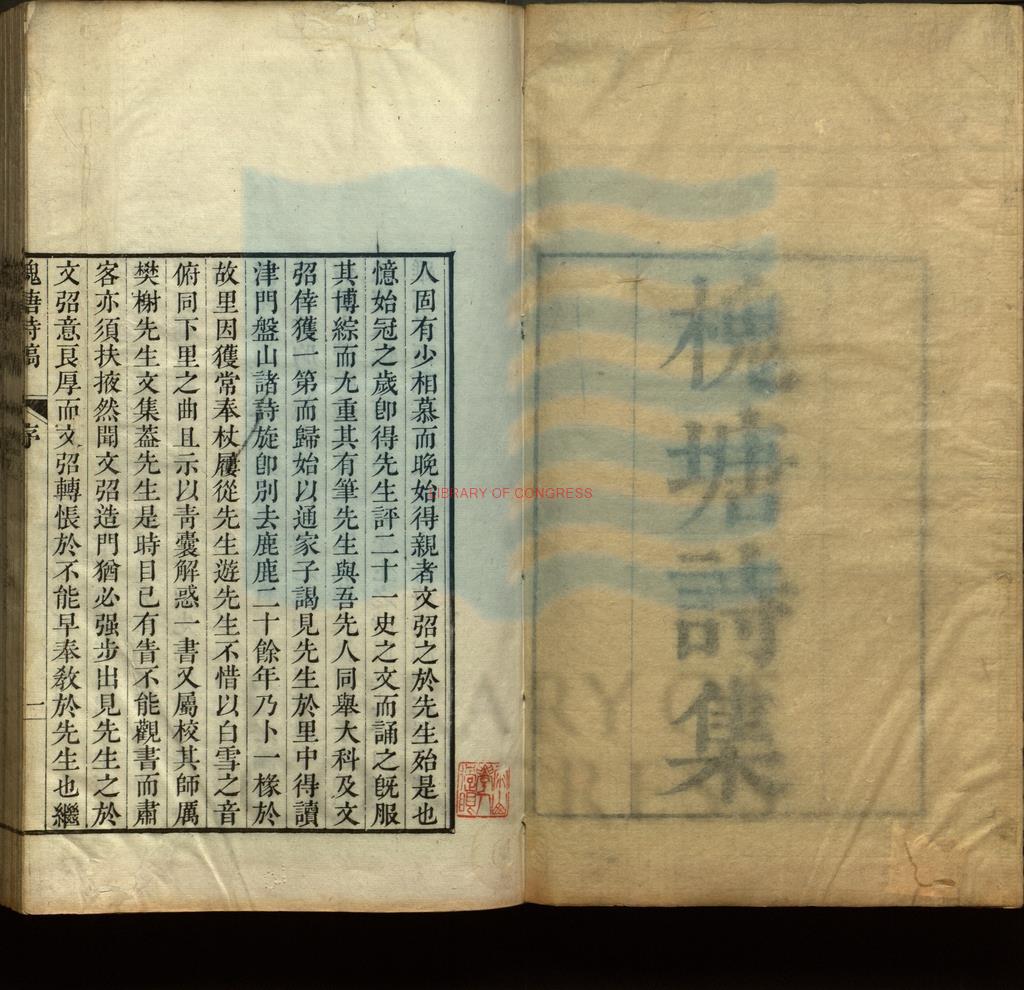 槐塘詩集
人固有少相慕而晚始得親者文弨之於先生殆是也
憶始冠之歲卽得先生評二十一史之文而誦之旣服
其博綜而尤重其有筆先生與吾先人同舉大科及文
弨倖獲一第而歸始以通家子謁見先生於里中得讀
津門盤山諸詩旋卽別去鹿鹿二十餘年乃卜一椽於
故里因獲常奉杖屨從先生遊先生不惜以白雪之音
俯同下里之曲且示以靑囊解惑一書又屬校其師厲
樊榭先生文集葢先生是時目已有眚不能觀書而肅
客亦須扶掖然聞文弨造門猶必强步出見先生之於
文弨意良厚而文弨轉悵於不能早奉敎於先生也繼
槐塘詩稿
序
一
LIBRARY OF CONGRESS